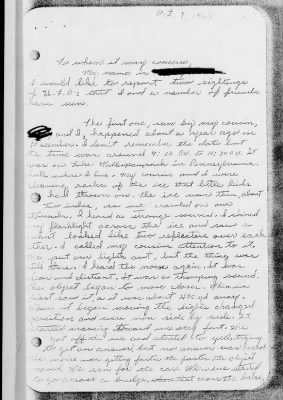 To whom it may concern,
My name is
I would like to report two sightings
of U.F.Os that I and a number of friends
have seen.
The first one, seen by my cousin,
and I, happened about a year ago in
December. I don't remember the date but
the time was around 9:30 to 10:30 P.M. It
was on Lake Wallenpaupack in Pennsylvania.
where I live. My cousin and I were
clearing rocks off the ice that little kids
had thrown on. The ice was then about
two inches, so we crawled on our
stomach. I heard a strange sound. I shined
my flashlight across the ice and saw a
what looked like two reflectors over each
other. I called my cousins attention to it.
We put our lights out, but the thing was
still there. I heard the noise again. It was
clear and distant. It was a thumping sound.
The object began to move closer. When we
first saw it, it was about 400 yd away.
When it began moving the lights changed
positions and were now side by side. It
started coming toward us very fast. We
got off the ice and started to yell, trying
to get an answer, but no answer was heard.
The noise was getting faster the faster the object
moved. We ran for the car. We started
to go across a bridge, when that cross the lake